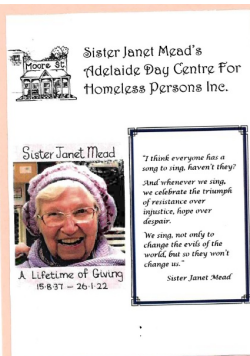 Moore St.
Sister Janet Mead's
Adelaide Day Centre For
Homeless Persons Inc.
Sister Janet Mead
A Lifetime of Giving
15·8·37 ~ 26·1·22
"I think everyone has a
song to sing, haven't they?
And whenever we sing,
we celebrate the triumph
of resistance over
injustice, hope over
despair.
We sing, not only to
change the evils of the
world, but so they won't
change us."
Sister Janet Mead